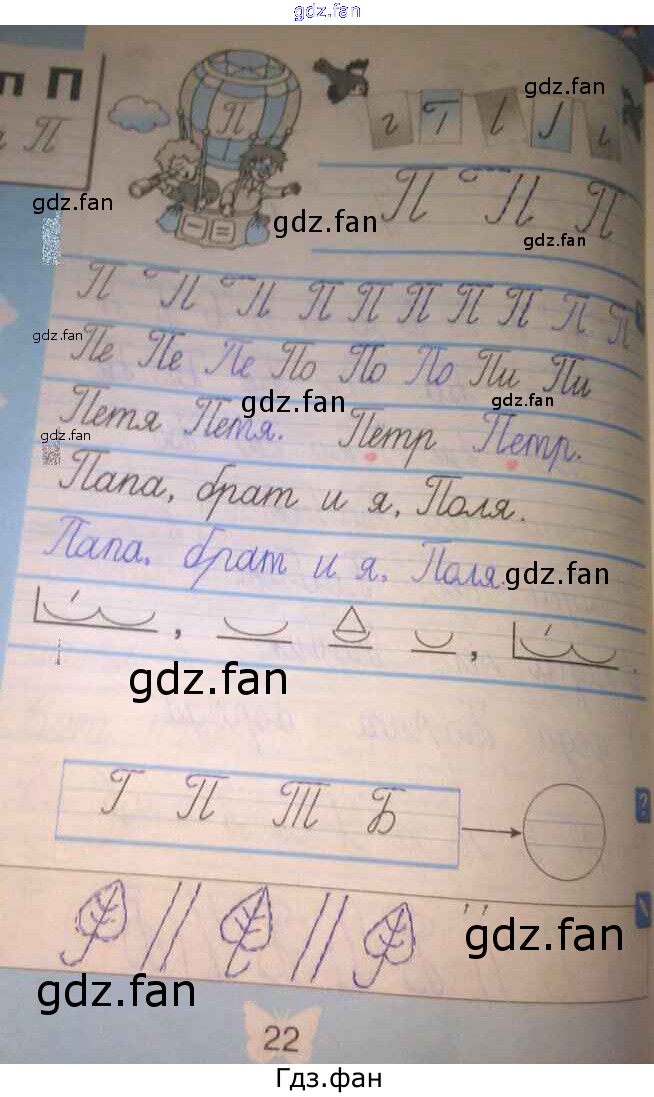 gdz.fan
п П
П
П
г Т
gdz.fan
П П П
gdz.fan
gdz.fan
gdz.fan
П П П П П П П П П П
gdz.fan
Пе Пе Пе По По По Пи Пи
gdz.fan
gdz.fan
Петя Петя. Петр Петр.
gdz.fan
Папа, брат и я, Поля.
Папа, брат и я, Поля.
gdz.fan
gdz.fan
Г П Т Б
gdz.fan
gdz.fan
22
Гдз.фан